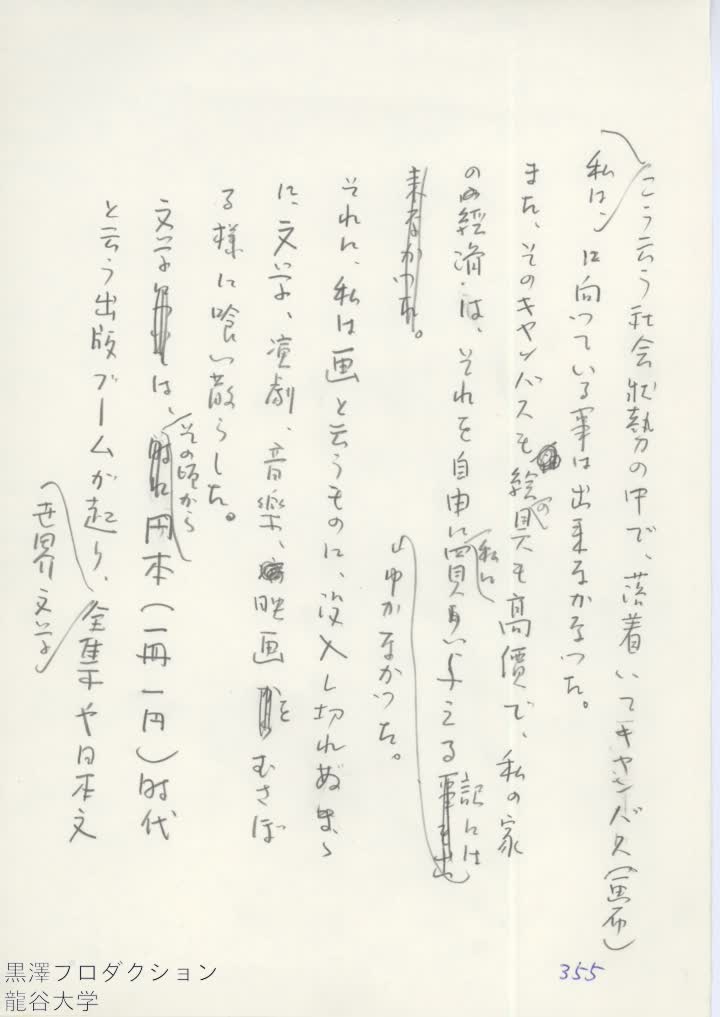 こう云う社会状勢の中で、落着いてキャンバス（画布）
私は、
に向っている事は出来なかなつた。
また、そのキャンバスも絵具も高價で、私の家
の
の経済は、それを自由に買い与える
私に
訳には
来なかつた。
ゆかなかつた。
それに、私は画と云うものに、没入し切れぬまゝ
に、文学、演劇、音楽、映画をむさぼ
る様に喰い散らした。
文学は、円本（一冊一円）時代
その頃から
と云う出版ブームが起り、全集や日本文
世界文学
355
黒澤プロダクション
龍谷大学